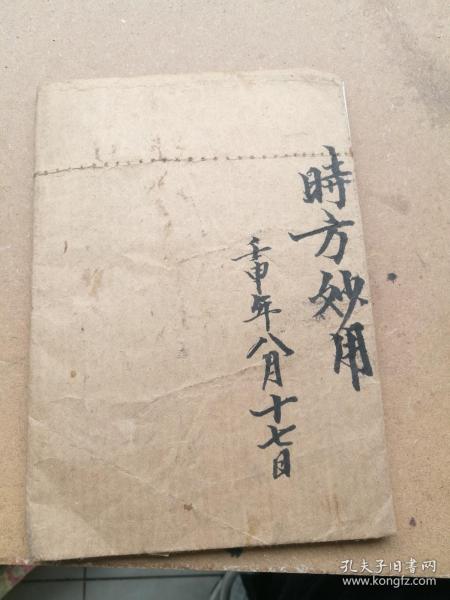 時方妙用
壬申年八月十七日
孔夫子旧书网
www.kongfz.com